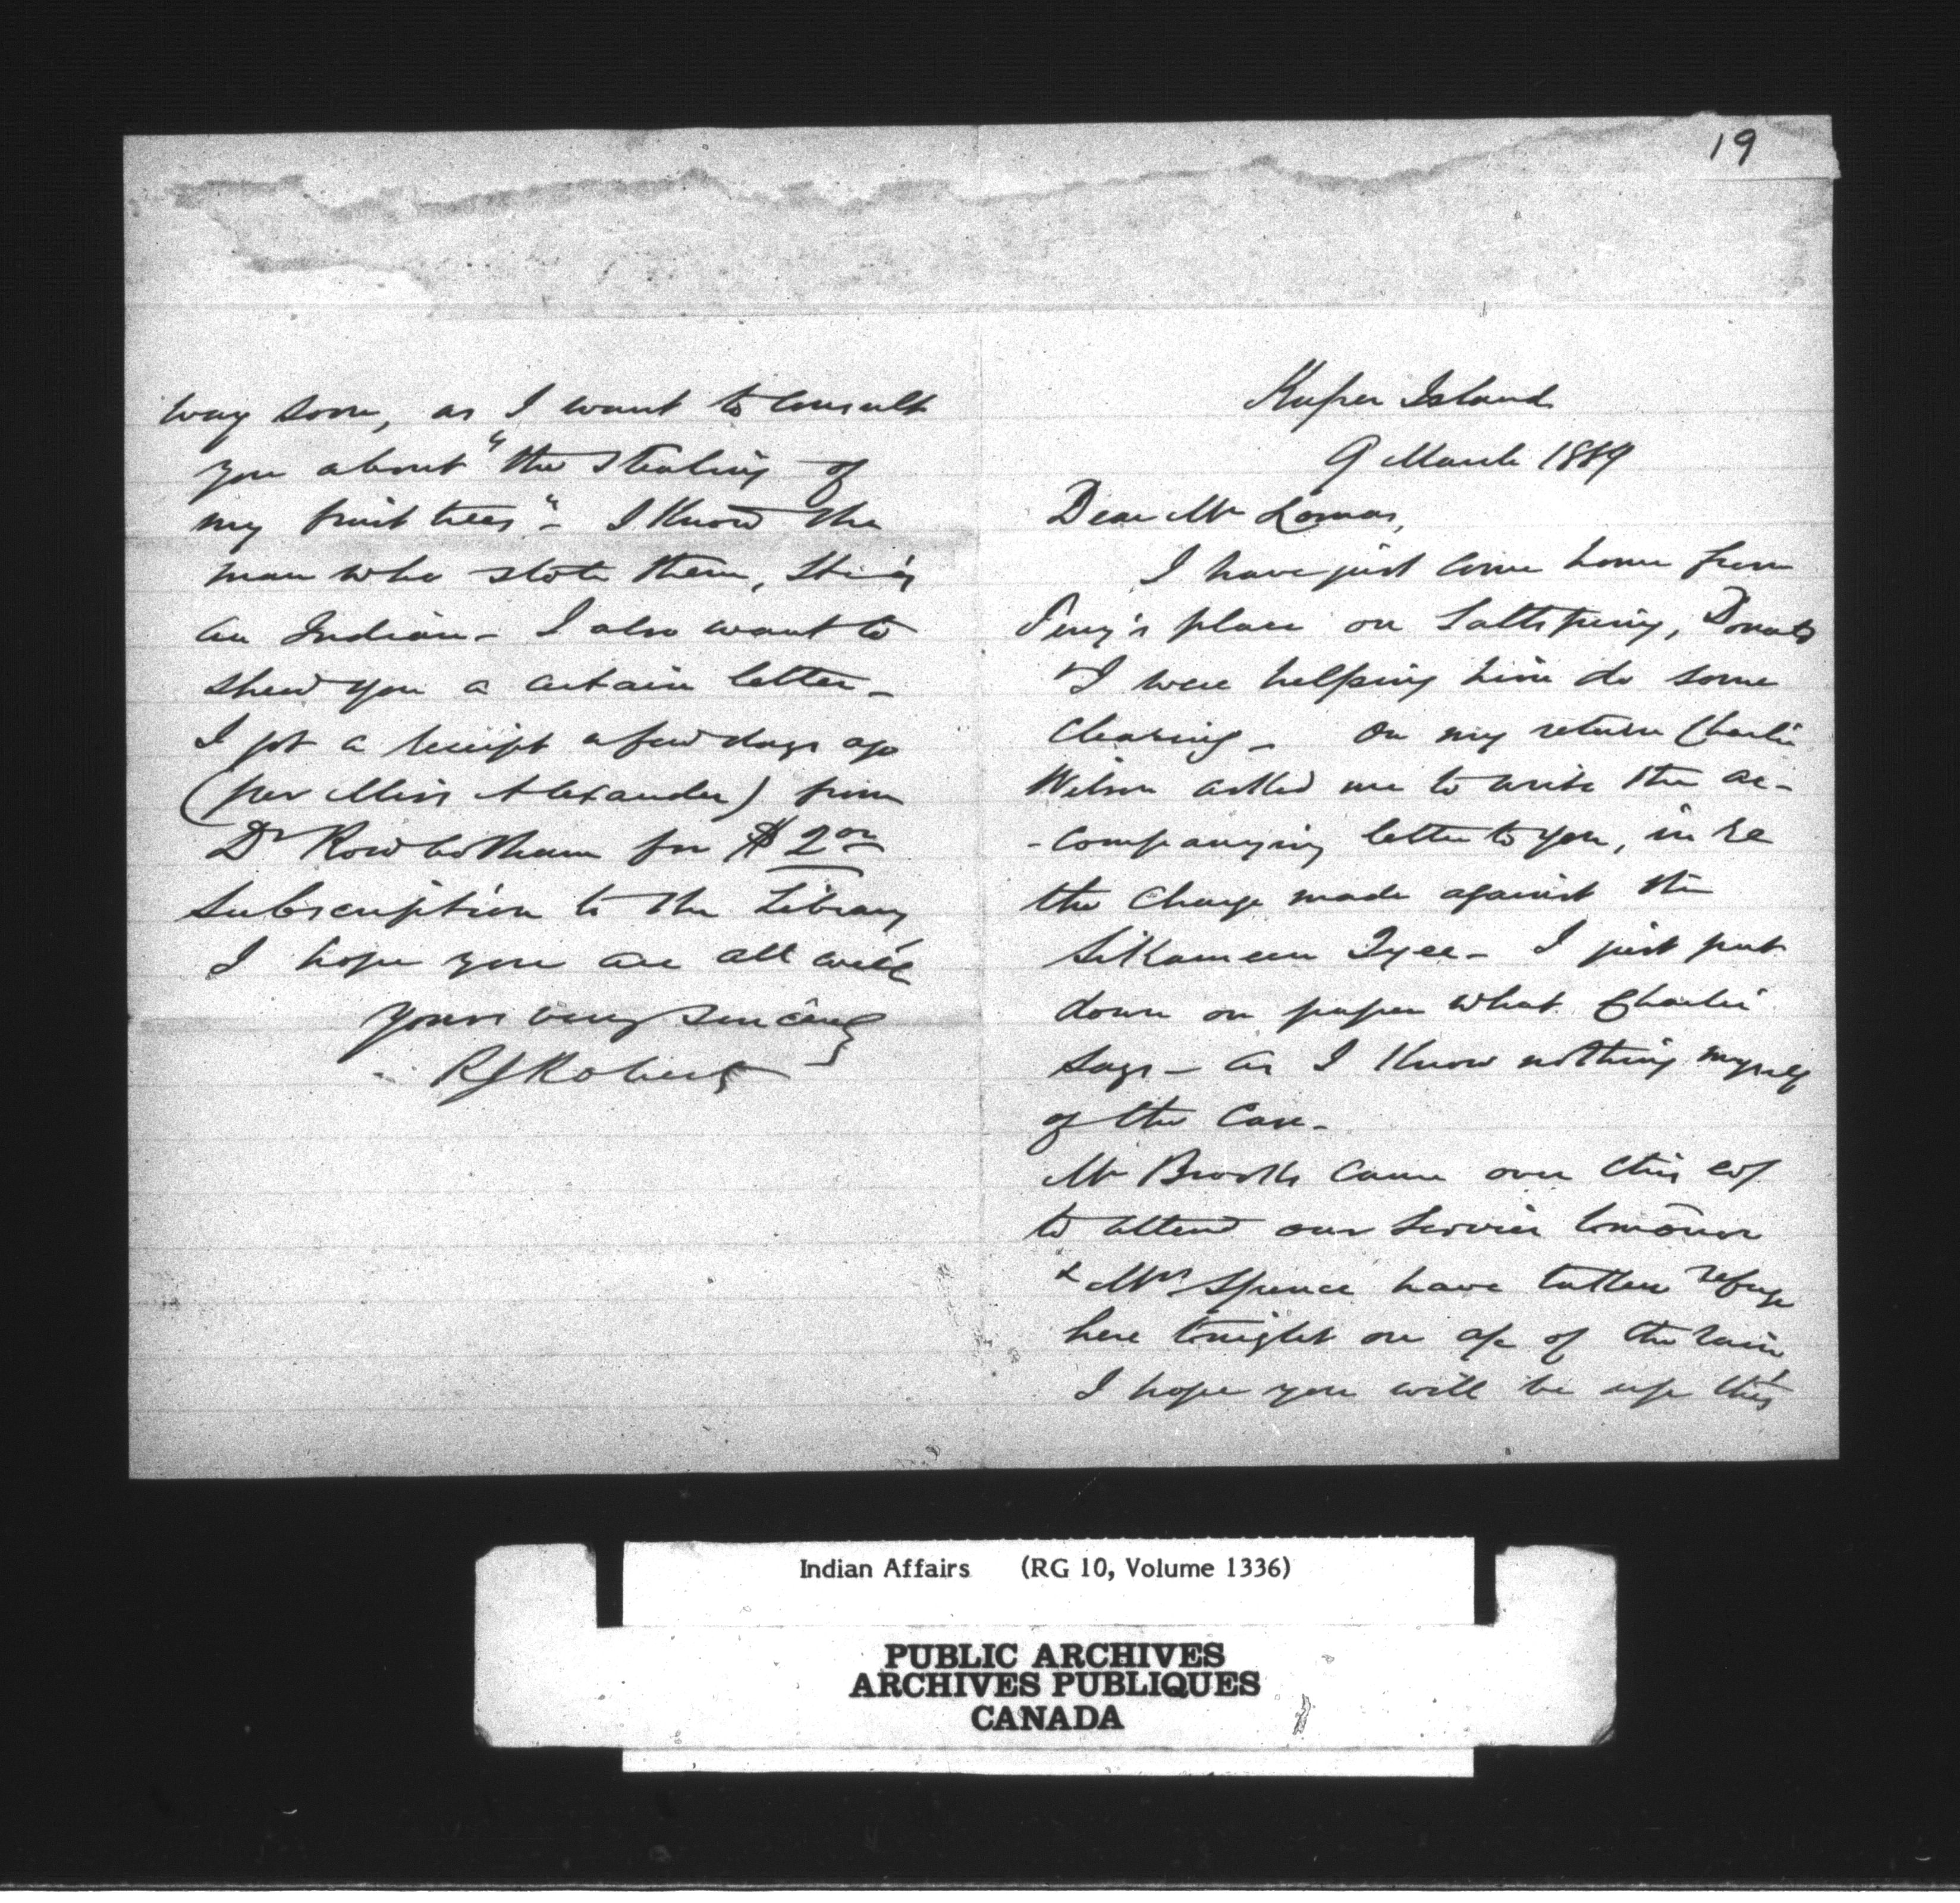 19
Kuper Island
9 March 1889
Dear Mr Lomas,
I have just come home from
place on Saltspring, Donald
& I were helping him do some
clearing - On my return Charlie
Wilson asked me to write the ac-
-companying letter to you, in re
the charge made against the
Sikameen Tyee - I just put
down on paper what Charlie
says - as I know nothing myself
of the Case -
Mr Brooks came over this
to attend our Service tomorrow
& Mrs Spence have taken refuge
here tonight on a/c of the rain
I hope you will be up this
way soon, as I want to consult
you about "the stealing of
my fruit trees" - I know the
man who stole them,
an Indian - I also want to
shew you a certain letter -
I got a receipt a few days ago
(per Miss Alexander) from
Dr Rowbotham for $2.00
Subscription to the Library
I hope you are all well
Yours very sincerely
RJ Roberts
Indian Affairs (RG 10, Volume 1336)
PUBLIC ARCHIVES
ARCHIVES PUBLIQUES
CANADA